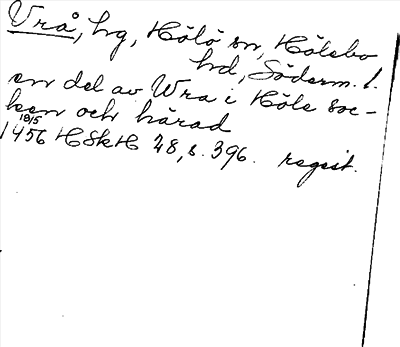 Vrå, hg, Hölö sn, Hölebo
hd, Söderm. l.
en del av Wra i Höle soc-
ken och härad
19/5
1456 HSkH 48, s. 396. regest.